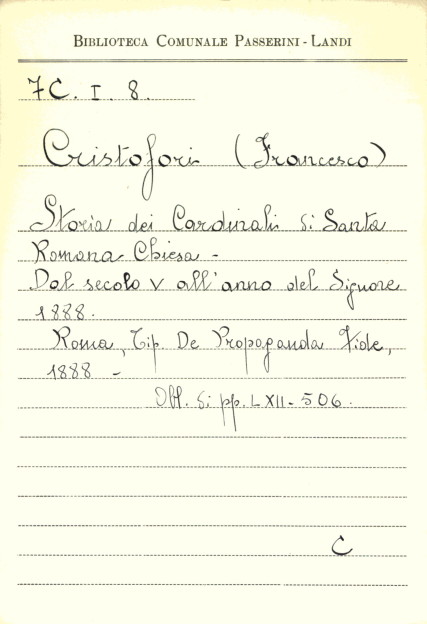 BIBLIOTECA COMUNALE PASSERINI - LANDI
7C. I. 8.
Cristofori (Francesco)
Storia dei Cardinali di Santa
Romana Chiesa -
Dal secolo V all'anno del Signore
1888.
Roma, Tip. De Propaganda Fide,
1888 -
di pp. LXII - 506.
C